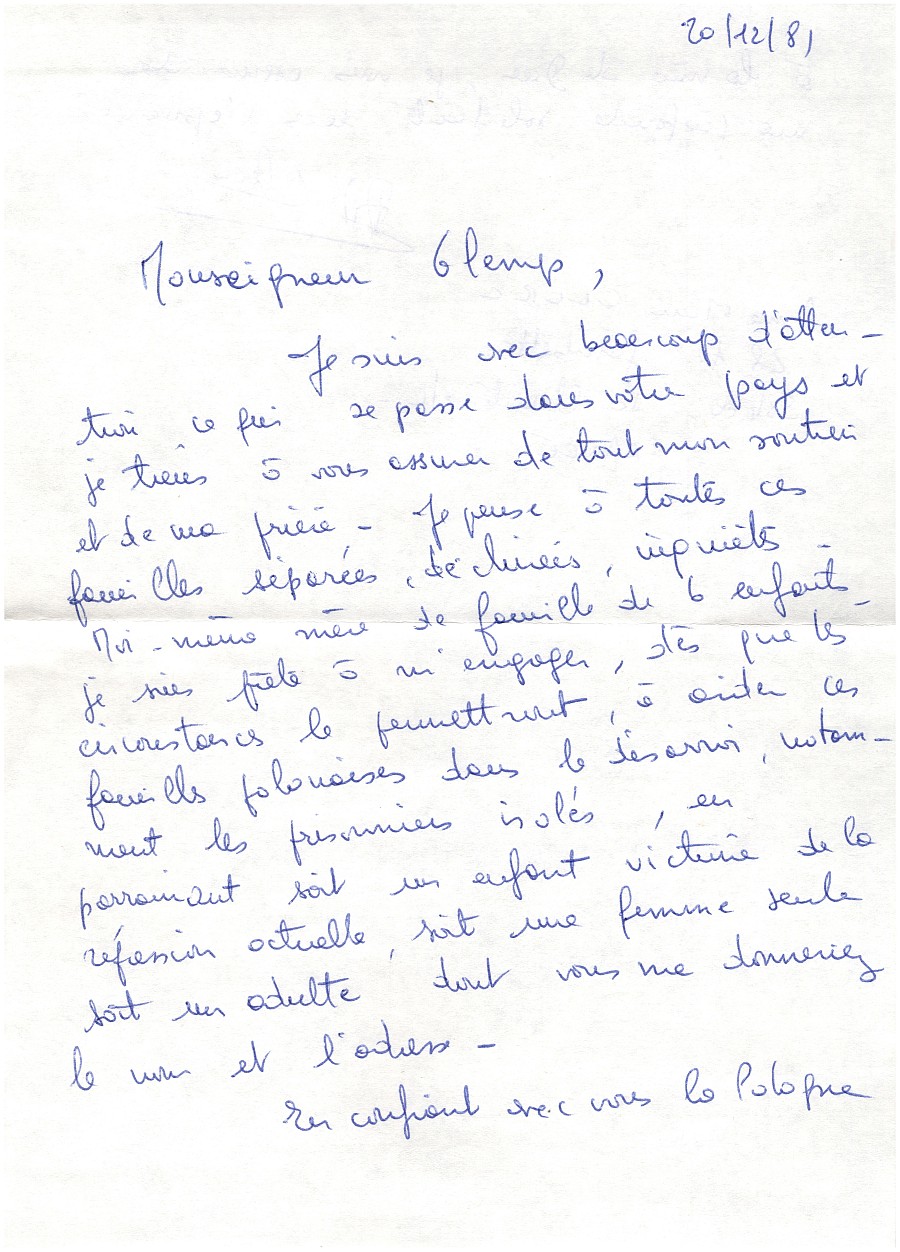 20/12/81
Monseigneur Glemp,
Je suis avec beaucoup d'atten-
tion ce qui se passe dans votre pays et
je tiens à vous assurer de tout mon soutien
et de ma prière - Je pense à toutes ces
familles séparées, déchirées, inquiètes -
Moi-même mère de famille de 6 enfants -
je suis prête à m'engager, dès que les
circonstances le permettront, à aider ces
familles polonaises dans le désarroi, notam-
ment les prisonniers isolés, en
parrainant soit un enfant victime de la
répression actuelle, soit une femme seule
soit un adulte dont vous me donneriez
le nom et l'adresse -
En confiant avec vous la Pologne